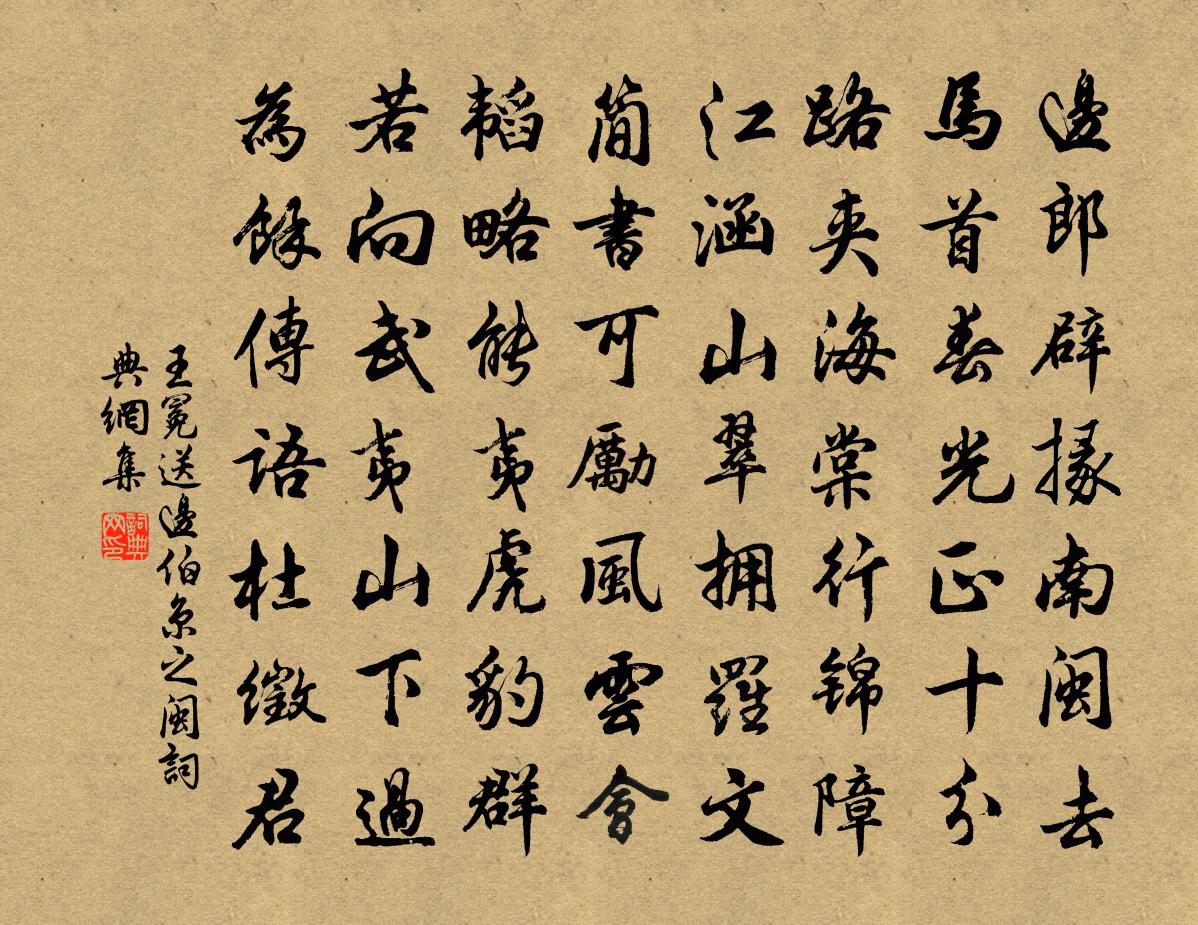 邊郎辟掾南闽去
馬首春光正十分
路夾海棠行锦障
江涵山翠拥羅文
简書可勵風雲會
韬略能夷虎豹群
若向武夷山下過
為餘傳語杜徵君
王冕送邊伯京之闽詞
典網集
詞典
网印